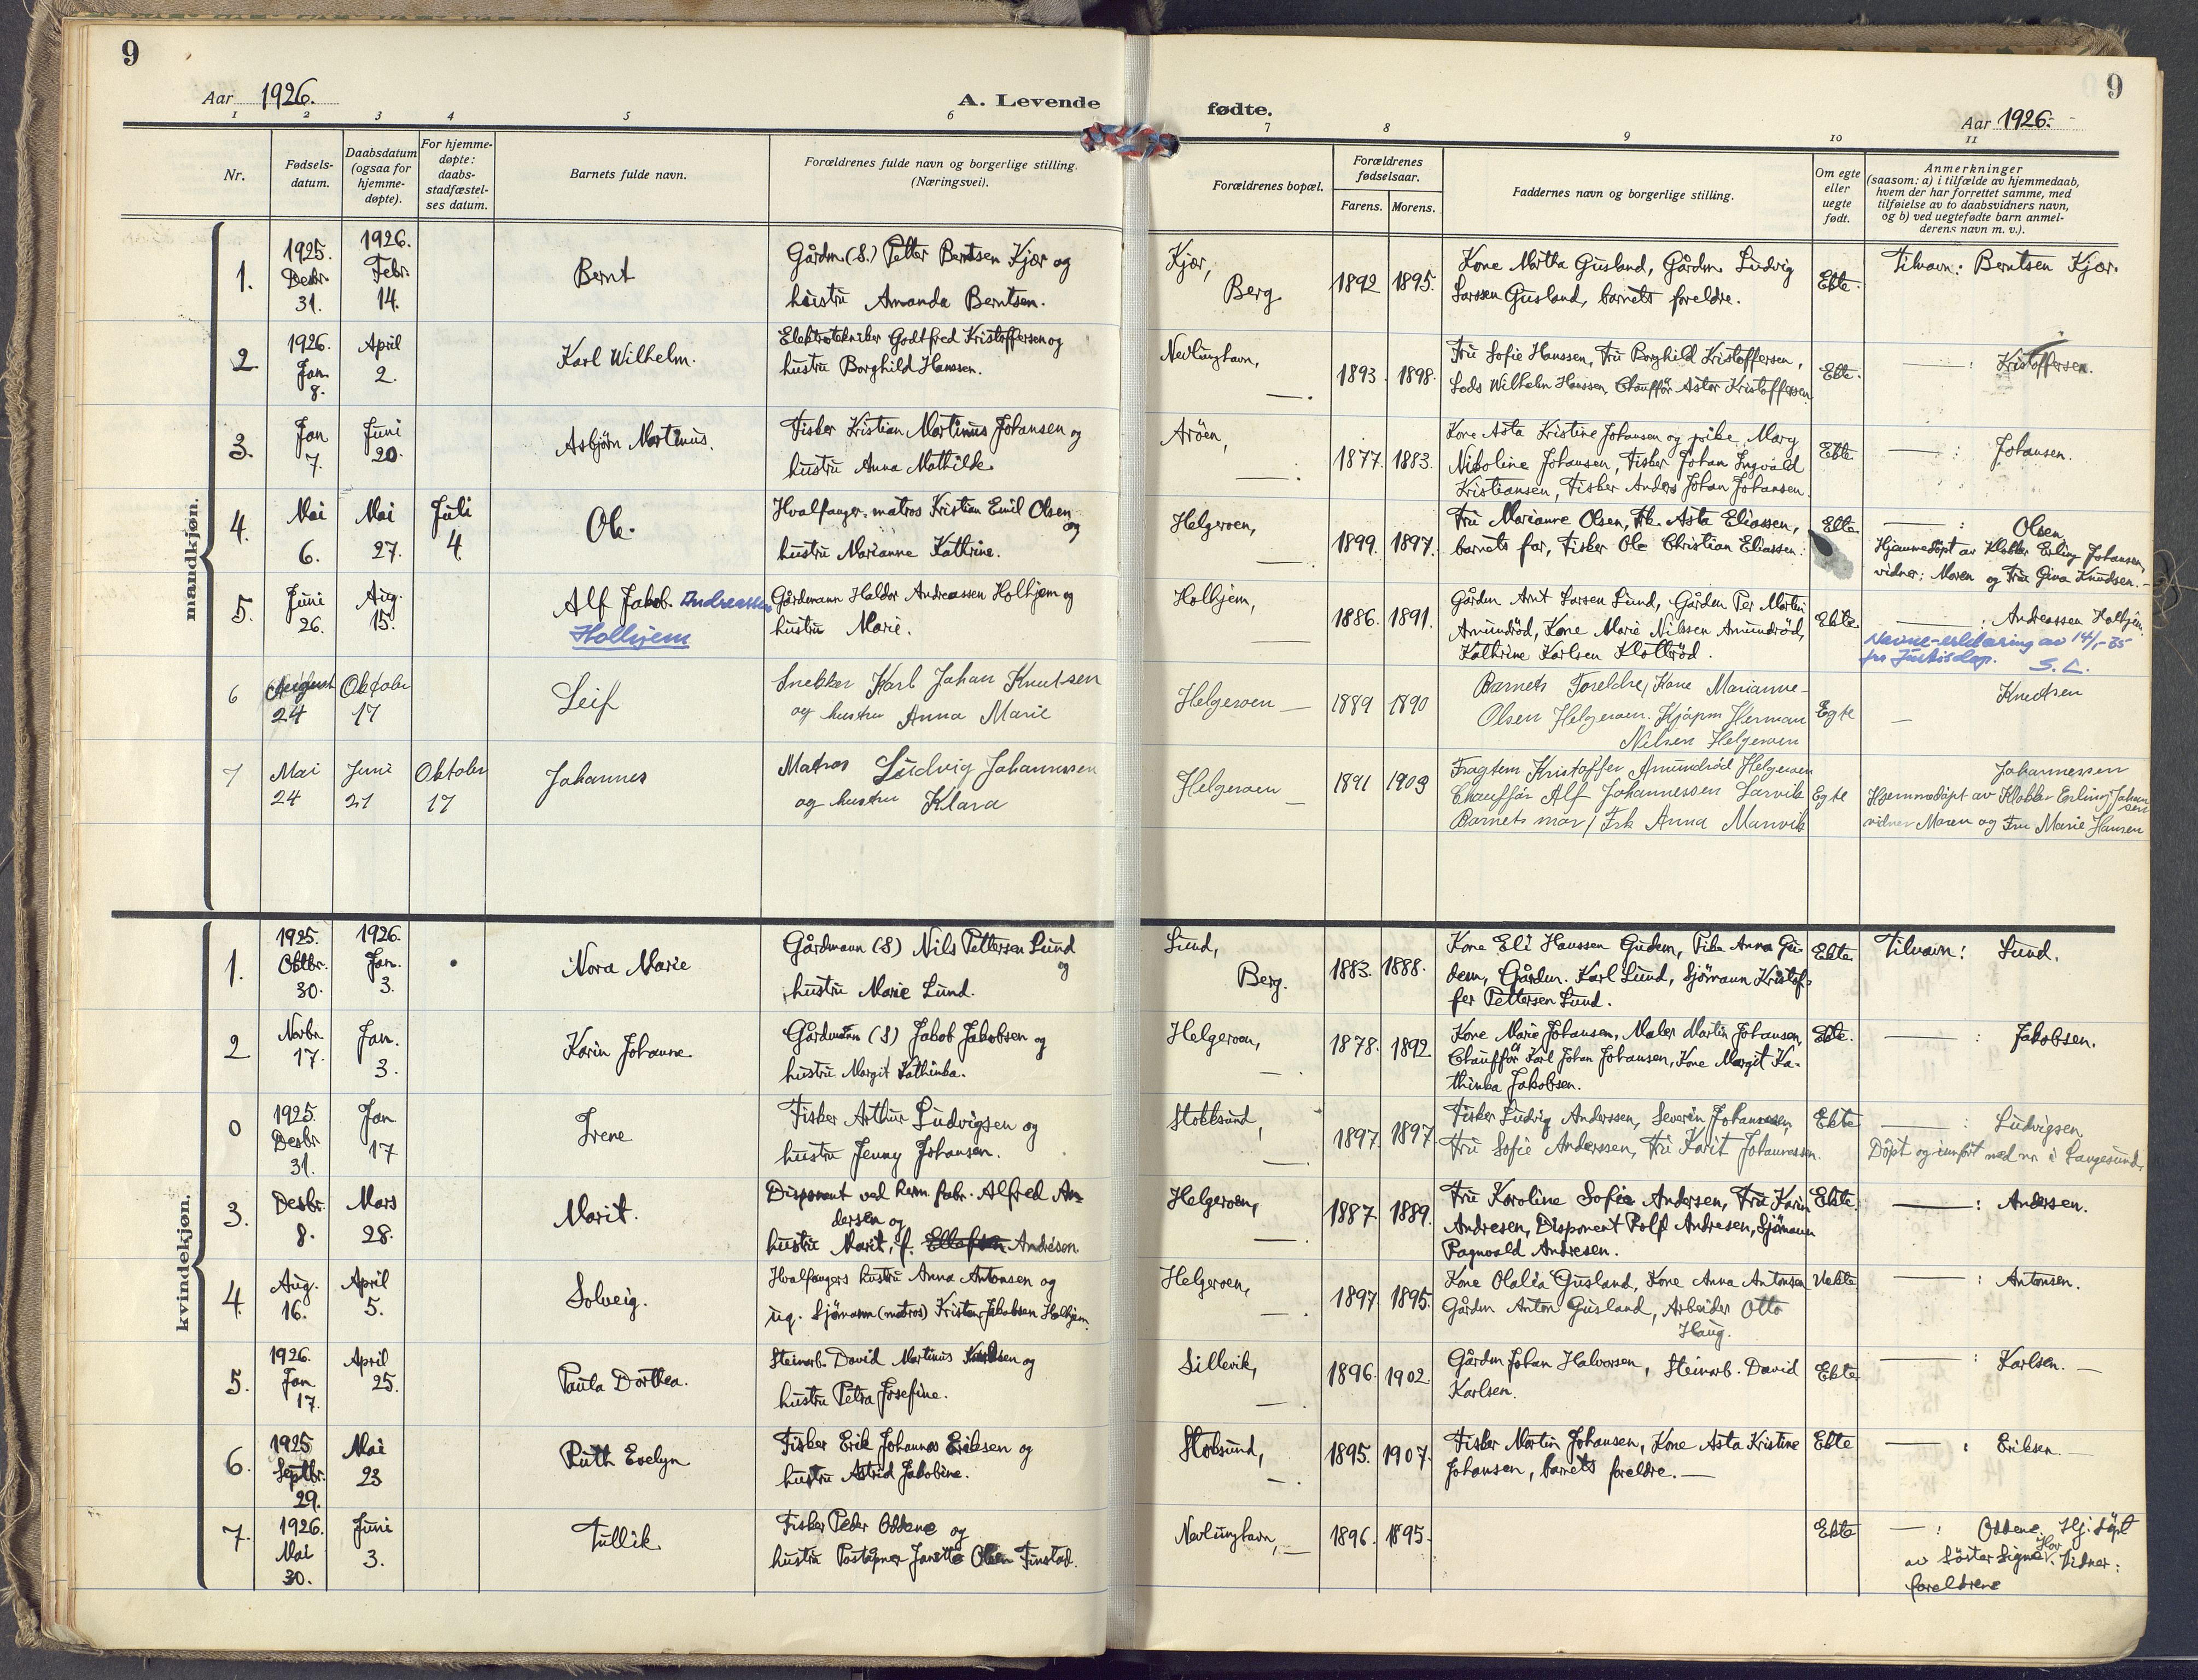 9
Aar 1926.
A. Levende
1 2 3 4 5 6
Nr.
Fødsels-
datum.
Daabsdatum
(ogsaa for
hjemme-
døpte).
For hjemme-
døpte:
daabs-
stadfæstel-
ses datum.
Barnets fulde navn.
Forældrenes fulde navn og borgerlige stilling.
(Næringsvei).
fødte.
9
Aar 1926.
7 8 9 10 11
Forældrenes bopæl.
Forældrenes
fødselsaar.
Farens. Morens.
Faddernes navn og borgerlige stilling.
Om egte
eller
uegte
født.
Anmerkninger
(saasom: a) i tilfælde av hjemmedaab,
hvem der har forrettet samme, med
tilføielse av to daabsvidners navn,
og b) ved uegtefødte barn anmel-
derens navn m. v.).
mandkjøn.
1.
1925.
Desbr.
31.
1926.
Febr.
14.
Bernt
Gårdm (S.) Petter Berntsen Kjær og
hustru Amanda Berntsen.
Kjær,
Berg
1892 1895.
Kone Martha Gusland, Gårdm. Ludvig
Larssen Gusland, barnets foreldre.
Ekte.
Tilnavn: Berntsen Kjær.
2
1926.
Jan.
8.
April
2.
Karl Wilhelm.
Elektrotekniker Godtfred Kristoffersen og
hustru Borghild Hanssen.
Nevlunghavn,
1893. 1898.
Fru Sofie Hanssen, Fru Borghild Kristoffersen,
Lods Wilhelm Hanssen, Chauffør Astor Kristoffersen.
Ekte.
— : Kristoffersen.
3.
Jan
7.
Juni
20.
Asbjørn Martinus.
Fisker Kristian Martinus Johansen og
hustru Anna Mathilde.
Arøen,
1877. 1883.
Kone Asta Kristine Johansen og pike Marg
Nikoline Johansen, Fisker Johan Ingvald
Kristiansen, Fisker Anders Johan Johansen.
Ekte
— : Johansen.
4.
Mai
6.
Mai
27.
Juli
4.
Ole.
Hvalfanger. matros Kristian Emil Olsen
og
hustru Marianne Kathrine.
Helgeroen,
1899. 1897.
Fru Marianne Olsen, Frk. Asta Eliassen,
barnets far, Fisker Ole Christian Eliassen.
Ekte
— : Olsen,
Hjemmedøpt av Klokker Erling Johansen,
vidner: Moren og Fru Gina Knudsen.
5.
Juni
26.
Aug.
15.
Alf Jakob. Andreassen
Holhjem
Gårdmann Haldor Andreassen Holhjem og
hustru Marie.
Holhjem,
1886. 1891.
Gårdm Arnt Larsen Lund, Gårdm Per Martin
Amundrød, Kone Marie Nilssen Amundrød,
Kathrine Karlsen Klottrød.
Ekte.
— : Andreassen Holhjem.
Navne-erklæring av 14/1-35
fra Justisdep. S. L.
6
August
24
Oktober
17
Leif
Snekker Karl Johan Knutsen
og hustru Anna Marie
Helgeroen —
1889 1890
Barnets Foreldre, Kone Marianne
Olsen Helgeroen. Kjøpm Herman
Nilsen Helgeroen
Egte
— Knutsen
7
Mai
24
Juni
21
Oktober
17
Johannes
Matros Ludvig Johannessen
og hustru Klara
Helgeroen —
1891 1903
Fragtem Kristoffer Amundrød Helgeroen
Chauffør Alf Johannessen Larvik
Barnets mor, Frk Anna Manvik
Egte
Johannessen
Hjemmedøpt av Klokker Erling Johan
sen
vidner Moren og Fru Marie Hansen
kvindekjøn.
1.
1925.
Oktbr.
30.
1926.
Jan.
3.
Nora Marie
Gårdmann (S) Nils Pettersen Lund
og
hustru Marie Lund.
Lund,
Berg.
1883. 1888.
Kone Eli Hanssen Gudem, Pike Anna Gu-
dem, Gårdm. Karl Lund, Sjømann Kristof-
fer Pettersen Lund.
Ekte.
Tilnavn: Lund.
2
Novbr.
17.
Jan.
3.
Karin Johanne.
Gårdmann (S) Jakob Jakobsen og
hustru Margit Kathinka.
Helgeroen,
1878. 1892
Kone Marie Johansen, Maler Martin Johansen,
Chauffør Karl Johan Johansen, Kone Margit Ka-
thinka Jakobsen.
Ekte.
— : Jakobsen.
0
1925.
Desbr
31.
Jan
17
Irene
Fisker Arthur Ludvigsen og
hustru Jenny Johansen.
Stokksund,
1897. 1897.
Fisker Ludvig Anderssen, Severin Johannessen,
Fru Sofie Anderssen, Fru Karit Johannessen.
Ekte
— : Ludvigsen.
Døpt og innført med nr. i Langesund.
3.
Desbr.
8.
Mars
28.
Marit.
Disponent ved herm. fabr. Alfred An-
dersen og
hustru Marit, f. Andresen.
Helgeroen,
1887 1889.
Fru Karoline Sofie Andersen, Fru Karin
Andresen, Disponent Rolf Andresen, Sjømann
Ragnvald Andresen.
Ekte.
— : Andersen.
4.
Aug.
16.
April
5.
Solveig.
Hvalfangers hustru Anna Antonsen og
ug. Sjømann (matros) Kristen Jakobsen Holhjem.
Helgeroen,
1897 1895.
Kone Olalia Gusland, Kone Anna Antonsen
Gårdm Anton Gusland, Arbeider Otto
Haug.
Uekte
— : Antonsen.
5.
1926.
Jan.
17.
April
25.
Paula Dorthea.
Steinarb. David Martinus Karlsen og
hustru Petra Josefine.
Sillevik,
1896. 1902
Gårdm Johan Halvorsen, Steinarb. David
Karlsen.
Ekte
— : Karlsen. —
6.
1925
Septbr.
29.
Mai
23
Ruth Evelyn
Fisker Erik Johannes Eriksen og
hustru Astrid Jakobine.
Stoksund,
1895. 1907.
Fisker Martin Johansen, Kone Asta Kristine
Johansen, barnets foreldre. —
Ekte
— : Eriksen.
7.
1926.
Mai
30.
Juni
3.
Tullik
Fisker Peder Oddene og
hustru Poståpner Janette Olsen Finstad.
Nevlunghavn, —
1896. 1895.
Ekte
— : Oddene. Hj. døpt
av Søster Signe Vidner:
foreldrene